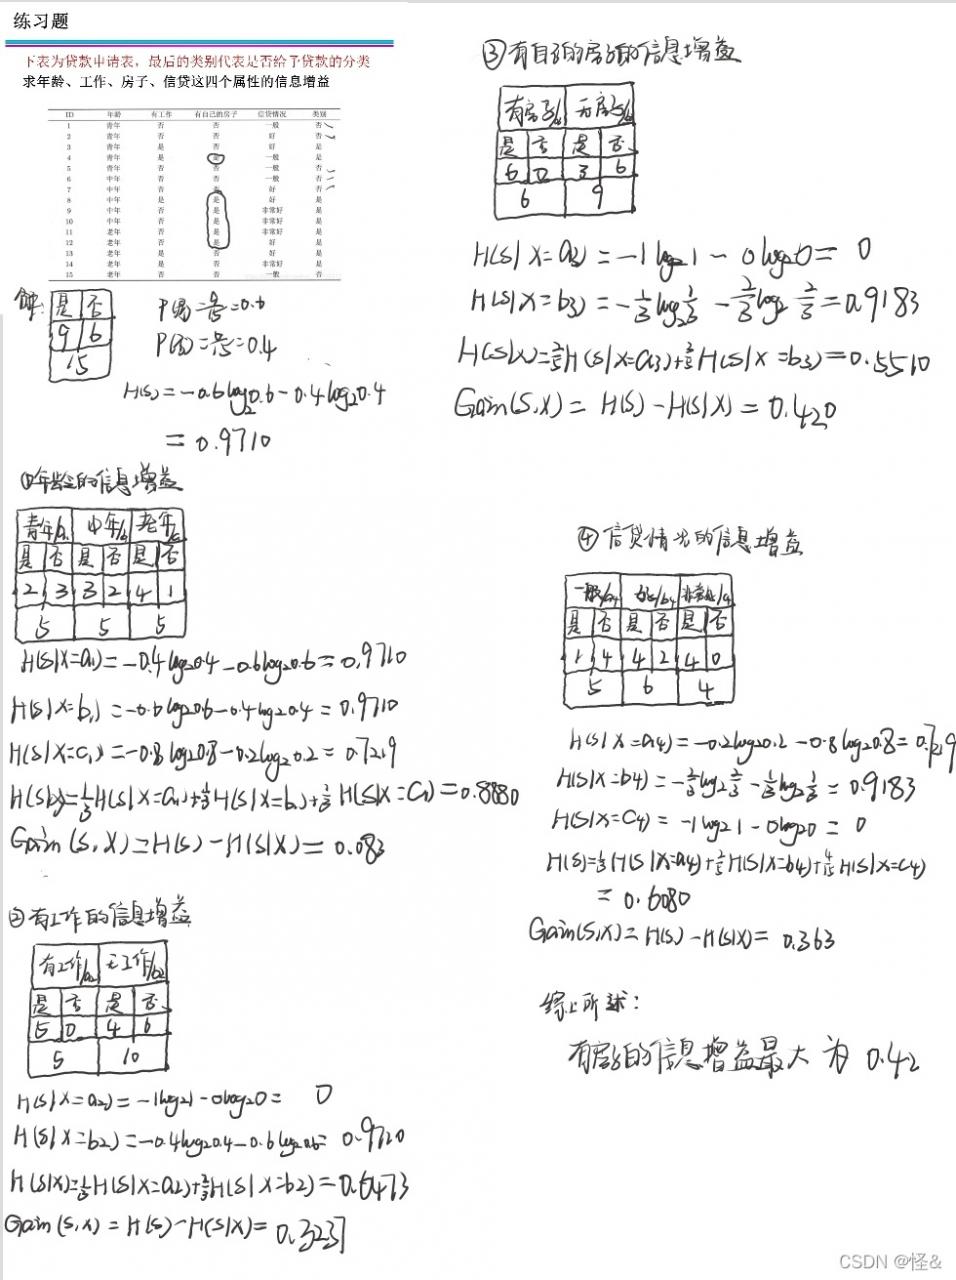 练习题
下表为贷款申请表，最后的类别代表是否给予贷款的分类
求年龄、工作、房子、信贷这四个属性的信息增益
ID 年龄 有工作 有自己的房子 信贷情况 类别
1 青年 否 否 一般 否
2 青年 否 否 好 否
3 青年 是 否 好 是
4 青年 是 是 一般 是
5 青年 否 否 一般 否
6 中年 否 否 一般 否
7 中年 否 否 好 否
8 中年 是 是 好 是
9 中年 否 是 非常好 是
10 中年 否 是 非常好 是
11 老年 否 是 非常好 是
12 老年 否 是 好 是
13 老年 是 否 好 是
14 老年 是 否 非常好 是
15 老年 否 否 一般 否
解:
是 否
9 6
15
P(是)=9/15=0.6
P(否)=6/15=0.4
H(S)=-0.6log₂0.6-0.4log₂0.4
=0.9710
①年龄的信息增益
青年/a₁ 中年/b₁ 老年/c₁
是 否 是 否 是 否
2 3 3 2 4 1
5 5 5
H(S|X=a₁)=-0.4log₂0.4-0.6log₂0.6=0.9710
H(S|X=b₁)=-0.6log₂0.6-0.4log₂0.4=0.9710
H(S|X=c₁)=-0.8log₂0.8-0.2log₂0.2=0.7219
H(S|X)=1/3H(S|X=a₁)+1/3H(S|X=b₁)+1/3H(S|X=c₁)=0.8880
Gain(S,X)=H(S)-H(S|X)=0.083
②有工作的信息增益
有工作/a₂ 无工作/b₂
是 否 是 否
5 0 4 6
5 10
H(S|X=a₂)=-1log₂1-0log₂0=0
H(S|X=b₂)=-0.4log₂0.4-0.6log₂0.6=0.9710
H(S|X)=1/3H(S|X=a₂)+2/3H(S|X=b₂)=0.6473
Gain(S,X)=H(S)-H(S|X)=0.3237
③有自己的房子的信息增益
有房子/a₃ 无房子/b₃
是 否 是 否
6 0 3 6
6 9
H(S|X=a₃)=-1log₂1-0log₂0=0
H(S|X=b₃)=-1/3log₂1/3-2/3log₂2/3=0.9183
H(S|X)=2/5H(S|X=a₃)+3/5H(S|X=b₃)=0.5510
Gain(S,X)=H(S)-H(S|X)=0.420
④信贷情况的信息增益
一般/a₄ 好/b₄ 非常好/c₄
是 否 是 否 是 否
1 4 4 2 4 0
5 6 4
H(S|X=a₄)=-0.2log₂0.2-0.8log₂0.8=0.7219
H(S|X=b₄)=-2/3log₂2/3-1/3log₂1/3=0.9183
H(S|X=c₄)=-1log₂1-0log₂0=0
H(S)=1/3H(S|X=a₄)+2/5H(S|X=b₄)+4/15H(S|X=c₄)
=0.6080
Gain(S,X)=H(S)-H(S|X)=0.363
综上所述:
有房子的信息增益最大为0.42
CSDN @怪&